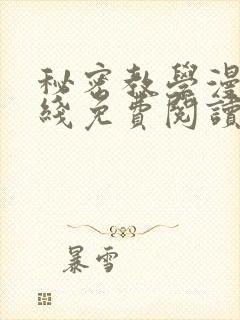 秘密教學漫
綫免費閱讀
暴雪